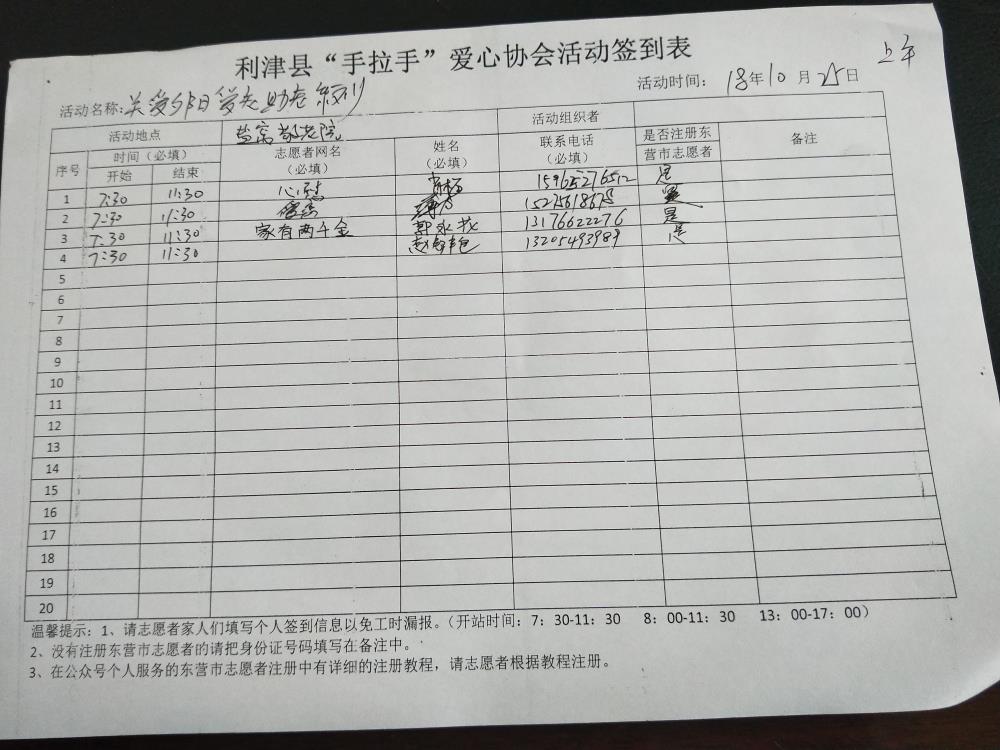 利津县“手拉手”爱心协会活动签到表
上午
活动时间： 18年10月25日
活动名称：关爱夕阳爱老助老系列
活动地点 盐窝敬老院 活动组织者
序号 时间（必填） 志愿者网名（必填） 姓名（必填） 联系电话（必填） 是否注册东营市志愿者 备注
开始 结束
1 7:30 11:30 15965276512 是
2 7:30 11:30 15275618675 是
3 7:30 11:30 家有两千金 郭永花 13176622276 是
4 7:30 11:30 13205493989 是
5
6
7
8
9
10
11
12
13
14
15
16
17
18
19
20
温馨提示：1、请志愿者家人们填写个人签到信息以免工时漏报。（开站时间：7：30-11：30 8：00-11：30 13：00-17：00）
2、没有注册东营市志愿者的请把身份证号码填写在备注中。
3、在公众号个人服务的东营市志愿者注册中有详细的注册教程，请志愿者根据教程注册。